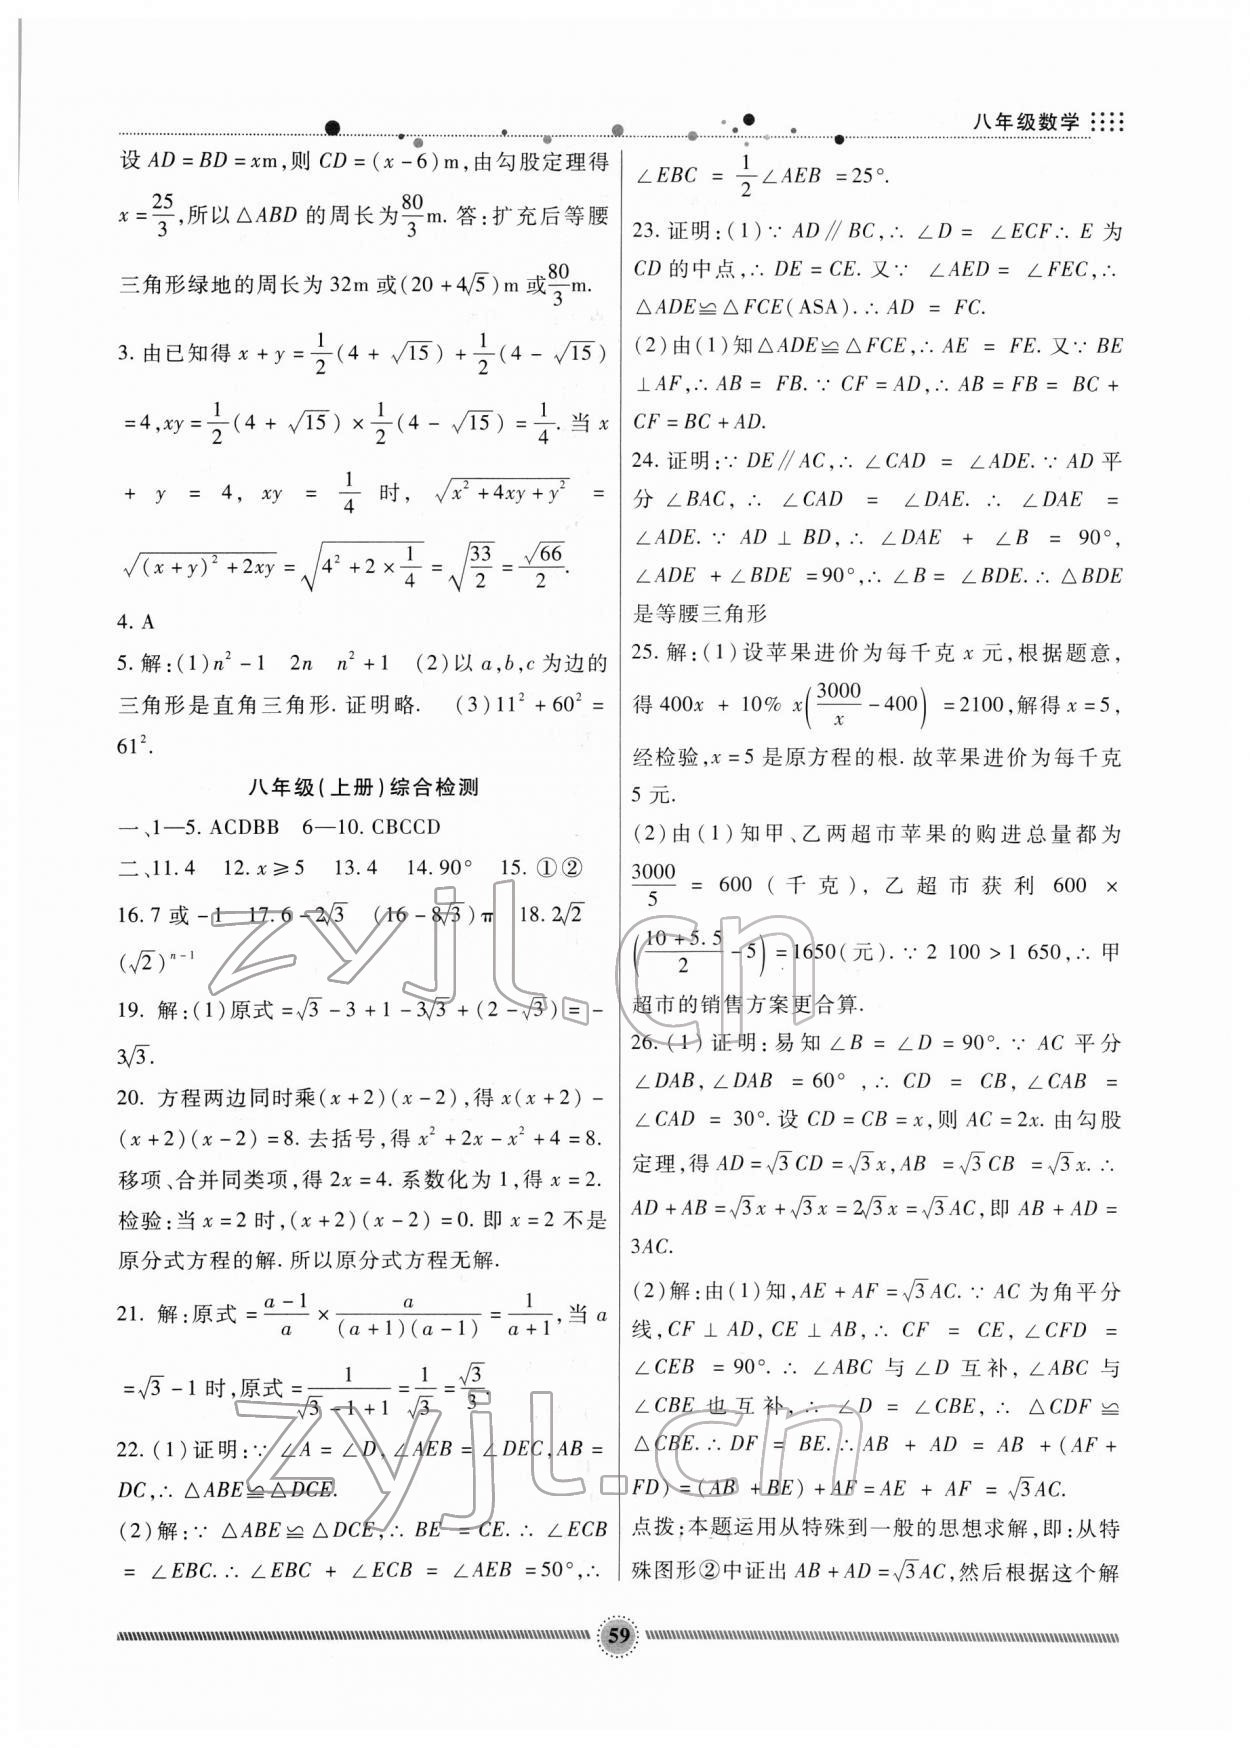 八年级数学
设 AD = BD = xm,则 CD = (x-6)m,由勾股定理得
x = 25/3,所以△ABD 的周长为80/3m. 答:扩充后等腰
三角形绿地的周长为 32m 或(20+4√5)m 或80/3m.
3. 由已知得 x+y = 1/2(4+√15)+1/2(4-√15)
=4,xy = 1/2(4+√15)×1/2(4-√15) = 1/4. 当 x
+ y = 4, xy = 1/4 时, √(x²+4xy+y²) =
√((x+y)²+2xy) = √(4²+2×1/4) = √(33/2) = √66/2.
4. A
5. 解:(1)n²-1 2n n²+1 (2)以 a,b,c 为边的
三角形是直角三角形. 证明略. (3)11²+60² =
61².
八年级(上册)综合检测
一、1—5. ACDBB 6—10. CBCCD
二、11.4 12. x≥5 13.4 14.90° 15. ①②
16.7 或-1 17.6-2√3 (16-8√3)π 18.2√2
(√2)ⁿ⁻¹
19. 解:(1)原式=√3-3+1-3√3+(2-√3)=-
3√3.
20. 方程两边同时乘(x+2)(x-2),得 x(x+2)-
(x+2)(x-2)=8. 去括号,得 x²+2x-x²+4=8.
移项、合并同类项,得 2x=4. 系数化为 1,得 x=2.
检验:当 x=2 时,(x+2)(x-2)=0. 即 x=2 不是
原分式方程的解. 所以原分式方程无解.
21. 解:原式 = (a-1)/a × a/((a+1)(a-1)) = 1/(a+1),当 a
=√3-1 时,原式 = 1/(√3-1+1) = 1/√3 = √3/3.
22. (1)证明:∵∠A=∠D,∠AEB=∠DEC,AB=
DC,∴△ABE≌△DCE.
(2)解:∵△ABE≌△DCE,∴BE=CE.∴∠ECB
=∠EBC.∴∠EBC+∠ECB=∠AEB=50°,∴
∠EBC = 1/2∠AEB = 25°.
23. 证明:(1)∵AD∥BC,∴∠D=∠ECF∴E 为
CD 的中点,∴DE=CE. 又∵∠AED=∠FEC,∴
△ADE≌△FCE(ASA).∴AD=FC.
(2)由(1)知△ADE≌△FCE,∴AE=FE. 又∵BE
⊥AF,∴AB=FB.∵CF=AD,∴AB=FB=BC+
CF=BC+AD.
24. 证明:∵DE∥AC,∴∠CAD=∠ADE.∵AD 平
分∠BAC,∴∠CAD=∠DAE.∴∠DAE=
∠ADE.∵AD⊥BD,∴∠DAE+∠B=90°,
∠ADE+∠BDE=90°,∴∠B=∠BDE.∴△BDE
是等腰三角形
25. 解:(1)设苹果进价为每千克 x 元,根据题意,
得 400x+10% x(3000/x-400)=2100,解得 x=5,
经检验,x=5 是原方程的根. 故苹果进价为每千克
5 元.
(2)由(1)知甲、乙两超市苹果的购进总量都为
3000/5 = 600(千克),乙超市获利 600×
((10+5.5)/2-5)=1650(元).∵2 100>1 650,∴甲
超市的销售方案更合算.
26. (1)证明:易知∠B=∠D=90°.∵AC 平分
∠DAB,∠DAB=60°,∴CD=CB,∠CAB=
∠CAD=30°. 设 CD=CB=x,则 AC=2x. 由勾股
定理,得 AD=√3CD=√3x,AB=√3CB=√3x.∴
AD+AB=√3x+√3x=2√3x=√3AC,即 AB+AD=
3AC.
(2)解:由(1)知,AE+AF=√3AC.∵AC 为角平分
线,CF⊥AD,CE⊥AB,∴CF=CE,∠CFD=
∠CEB=90°.∴∠ABC 与∠D 互补,∠ABC 与
∠CBE 也互补,∴∠D=∠CBE,∴△CDF≌
△CBE.∴DF=BE.∴AB+AD=AB+(AF+
FD)=(AB+BE)+AF=AE+AF=√3AC.
点拨:本题运用从特殊到一般的思想求解,即:从特
殊图形②中证出 AB+AD=√3AC,然后根据这个解
59
zyjl.cn
zyjl.cn